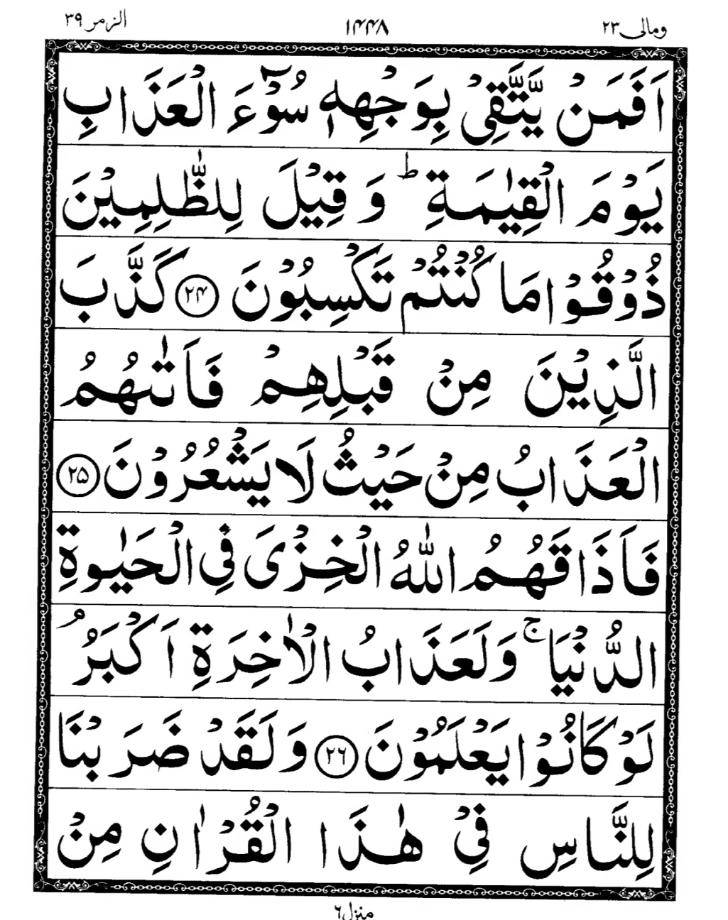 الزمر ۳۹ ۱۴۴۸ ومالی ۲۳
اَفَمَنْ يَّتَّقِيْ بِوَجْهِهٖ سُوْٓءَ الْعَذَابِ
يَوْمَ الْقِيٰمَةِ ؕ وَ قِيْلَ لِلظّٰلِمِيْنَ
ذُوْقُوْا مَا كُنْتُمْ تَكْسِبُوْنَ ۲۴ كَذَّبَ
الَّذِيْنَ مِنْ قَبْلِهِمْ فَاَتٰىهُمُ
الْعَذَابُ مِنْ حَيْثُ لَا يَشْعُرُوْنَ ۲۵
فَاَذَاقَهُمُ اللّٰهُ الْخِزْيَ فِي الْحَيٰوةِ
الدُّنْيَا ۚ وَلَعَذَابُ الْاٰخِرَةِ اَكْبَرُ ۘ
لَوْ كَانُوْا يَعْلَمُوْنَ ۲۶ وَلَقَدْ ضَرَبْنَا
لِلنَّاسِ فِيْ هٰذَا الْقُرْاٰنِ مِنْ
منزل ۶